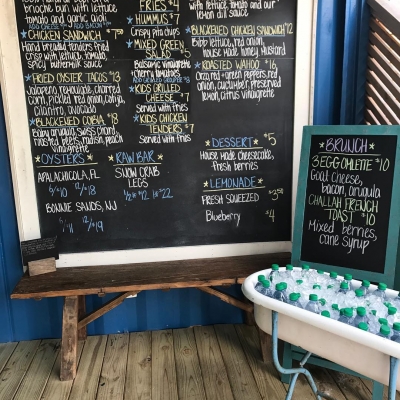 brioche bun with lettuce
tomato and garlic aioli
ADD CHEESE ADD BACON
*CHICKEN SANDWICH $7.50
Hand breaded tenders fried
crisp with lettuce, tomato,
spicy buffalo sauce
*FRIED OYSTER TACOS $13
Jalapeno remoulade, charred
corn, pickled red onion, cotija,
cilantro, avocado
*BLACKENED COBIA $18
Baby arugula, swiss chard,
roasted beets, radish, peach
vinaigrette
*OYSTERS*
APALACHICOLA, FL
6/$10 12/$18
BONNIE SANDS, NJ
6/11 12/$19
FRIES $4
*HUMMUS $7
Crispy pita chips
*MIXED GREEN
SALAD $5
Balsamic vinaigrette
cherry tomatoes
ADD GRILLED GROUPER
*KIDS GRILLED
CHEESE $7
Served with fries
*KIDS CHICKEN
TENDERS $7
Served with fries
*RAW BAR*
SNOW CRAB
LEGS
1/2 lb $12 1lb $22
with lettuce, tomato and our
lemon dill sauce
*BLACKENED CHICKEN SANDWICH $12
Bibb lettuce, red onion,
house made honey mustard
*ROASTED WAHOO $16
Orzo, red + green peppers, red
onion, cucumber, preserved
lemon, citrus vinaigrette
*DESSERT* $5
House made cheesecake,
fresh berries
*LEMONADE*
FRESH SQUEEZED $3.50
Blueberry $4
*BRUNCH*
3 EGG OMLETTE $10
Goat cheese,
bacon, arugula
CHALLAH FRENCH
TOAST $10
Mixed berries,
cane syrup